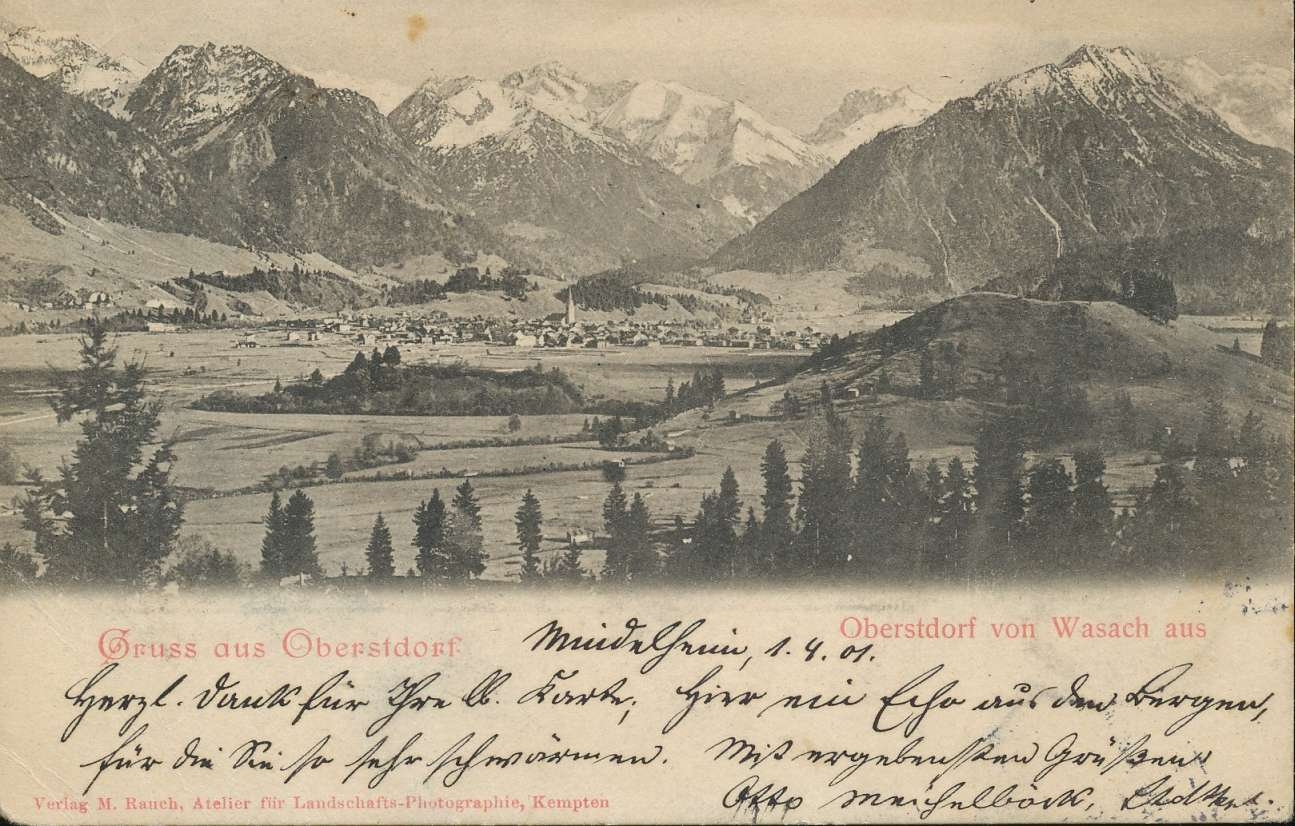 Gruss aus Oberstdorf
Oberstdorf von Wasach aus
Mindelheim, 1. 4. 01.
Herzl. Dank für Ihre lb. Karte; Hier ein Echo aus den Bergen,
für die Sie so sehr schwärmen. Mit ergebensten Grüßen
Otto Meichelböck,
Verlag M. Rauch, Atelier für Landschafts-Photographie, Kempten